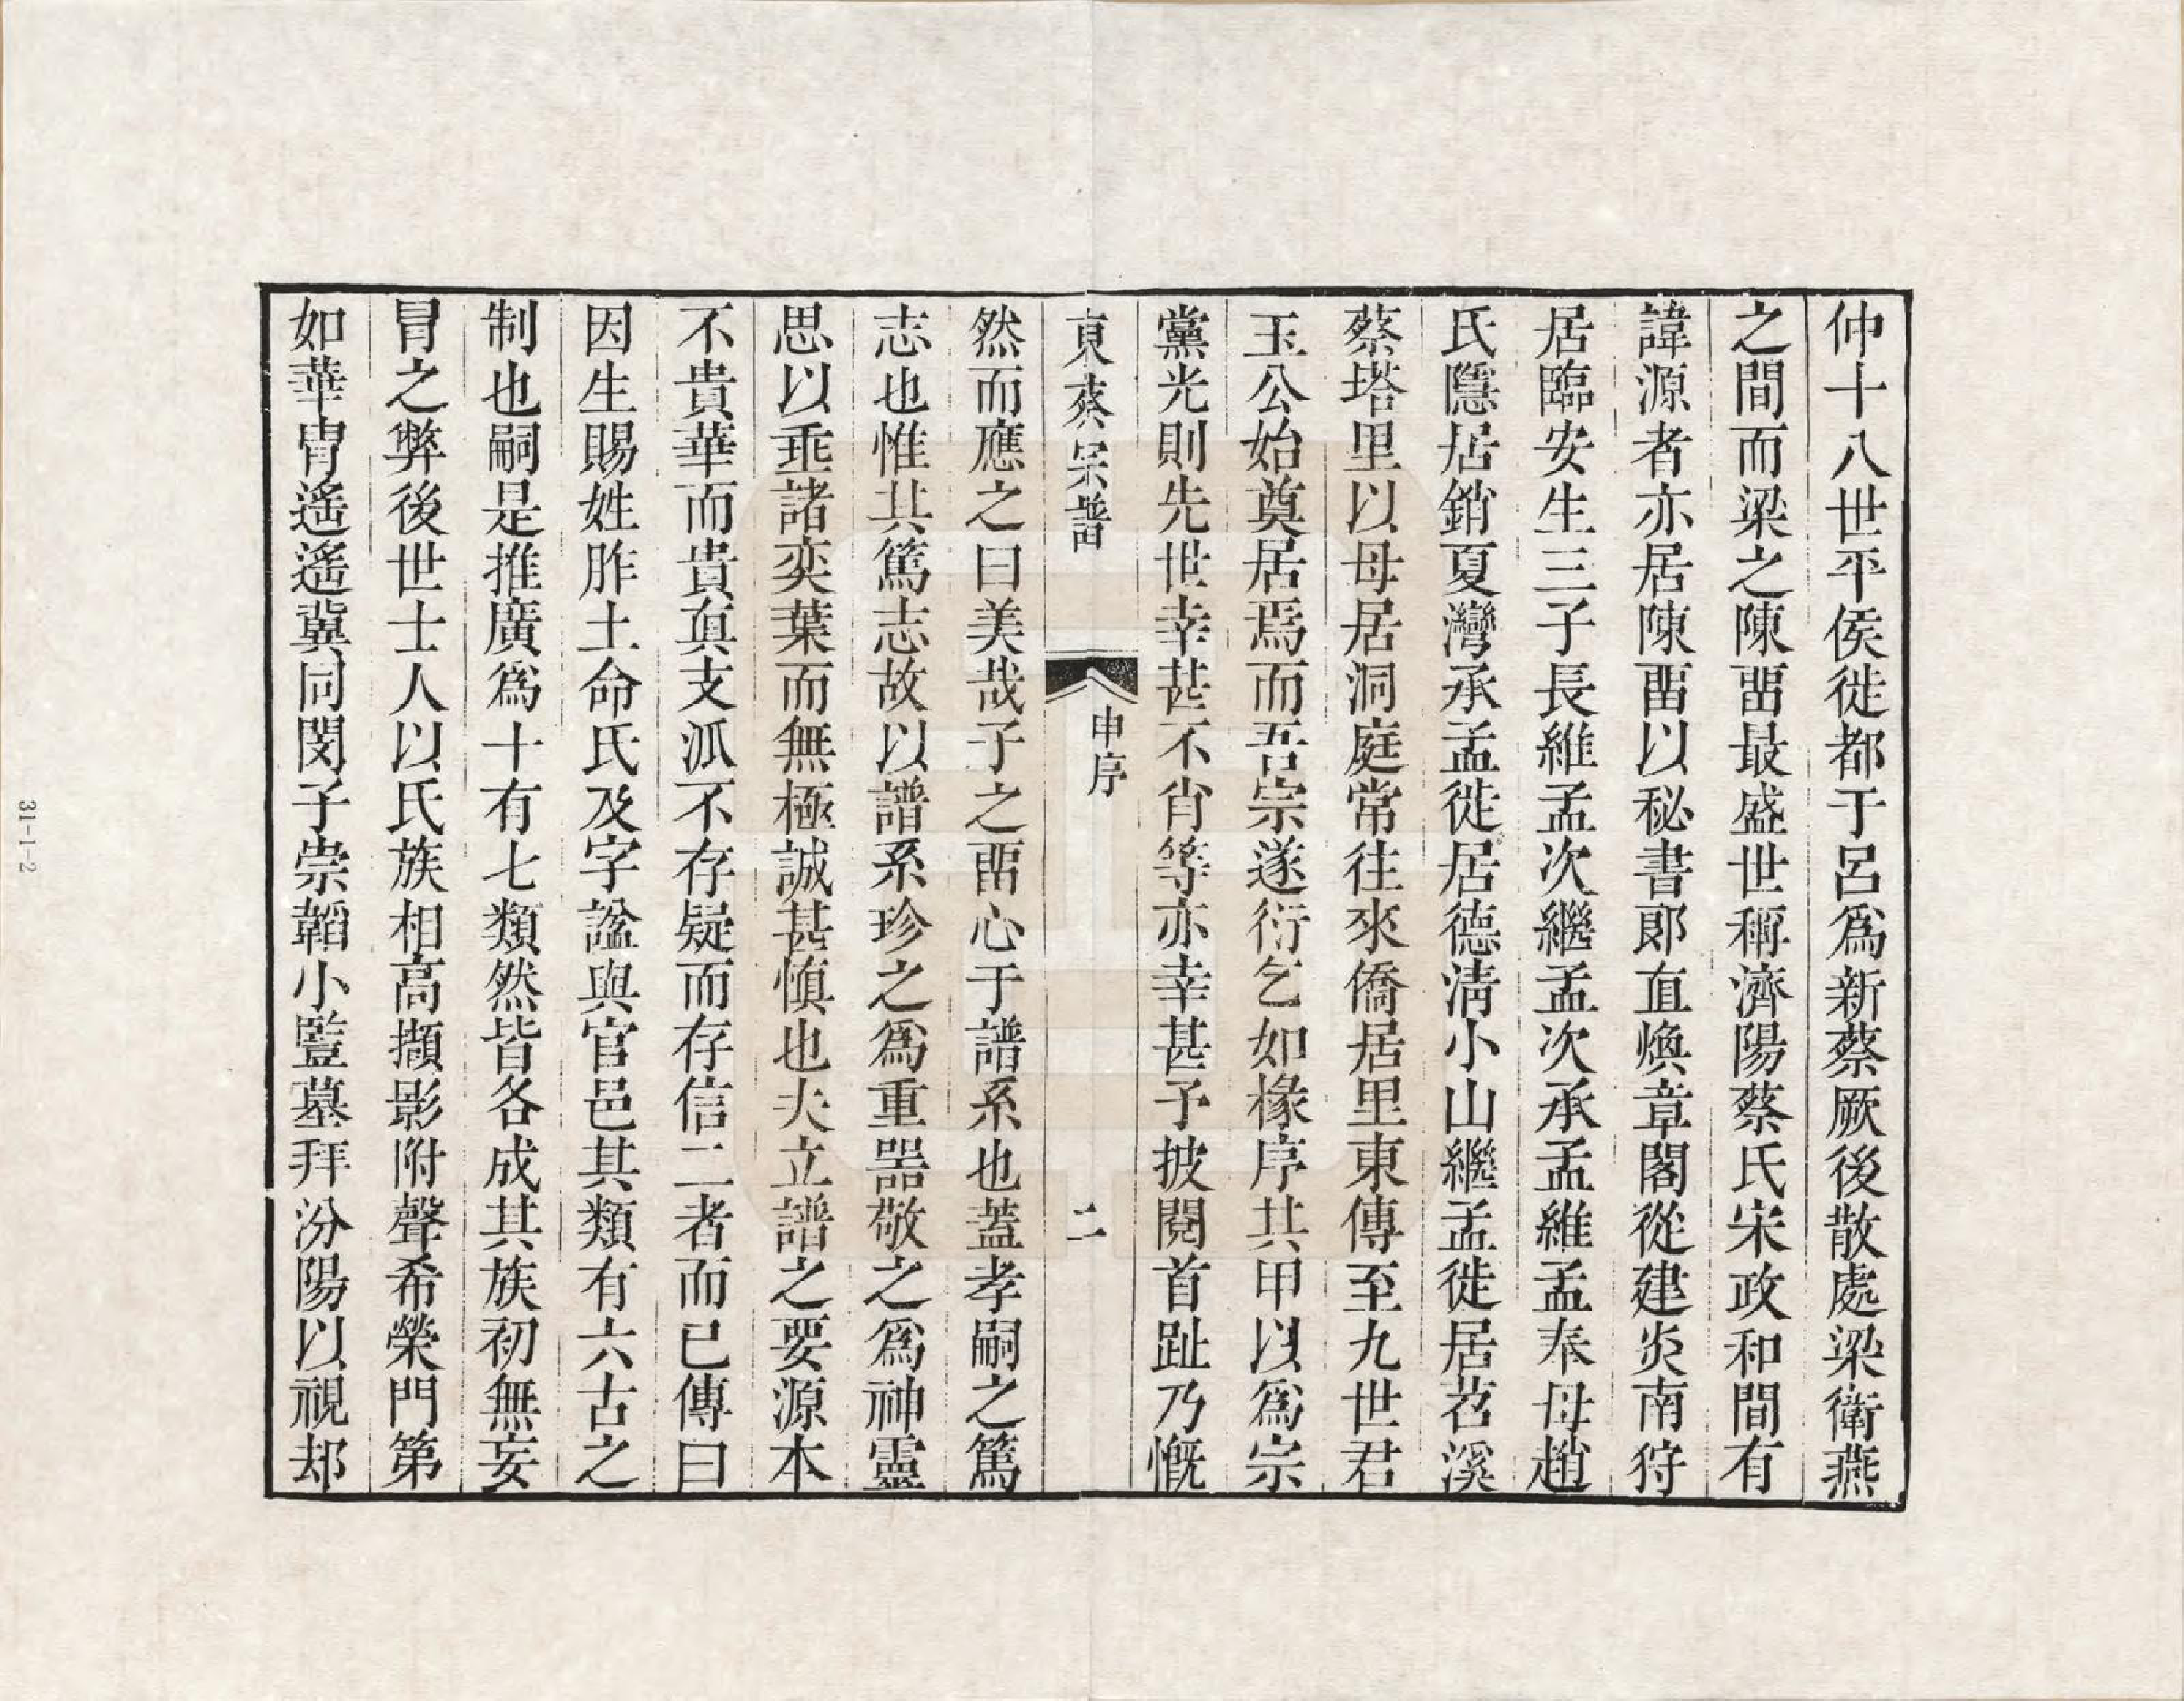 仲十八世平侯徙都于呂爲新蔡厥後散處梁衛燕
之間而梁之陳畱最盛世稱濟陽蔡氏宋政和間有
諱源者亦居陳畱以秘書郞直煥章閣從建炎南狩
居臨安生三子長維孟次繼孟次承孟維孟奉母趙
氏隱居銷夏灣承孟徙居德淸小山繼孟徙居苕溪
蔡塔里以母居洞庭常往來僑居里東傳至九世君
玉公始奠居焉而吾宗遂衍乞如椽序其甲以爲宗
黨光則先世幸甚不肖等亦幸甚予披閱首趾乃慨
東蔡宗譜
申序
二
然而應之曰美哉子之畱心于譜系也蓋孝嗣之篤
志也惟其篤志故以譜系珍之爲重噐敬之爲神靈
思以垂諸奕葉而無極誠甚愼也夫立譜之要源本
不貴華而貴眞支派不存疑而存信二者而已傳曰
因生賜姓胙土命氏及字謚與官邑其類有六古之
制也嗣是推廣爲十有七類然皆各成其族初無妄
冒之弊後世士人以氏族相高擷影附聲希榮門第
如華胄遙遙冀同閔子崇韜小豎墓拜汾陽以視却
31-1-2